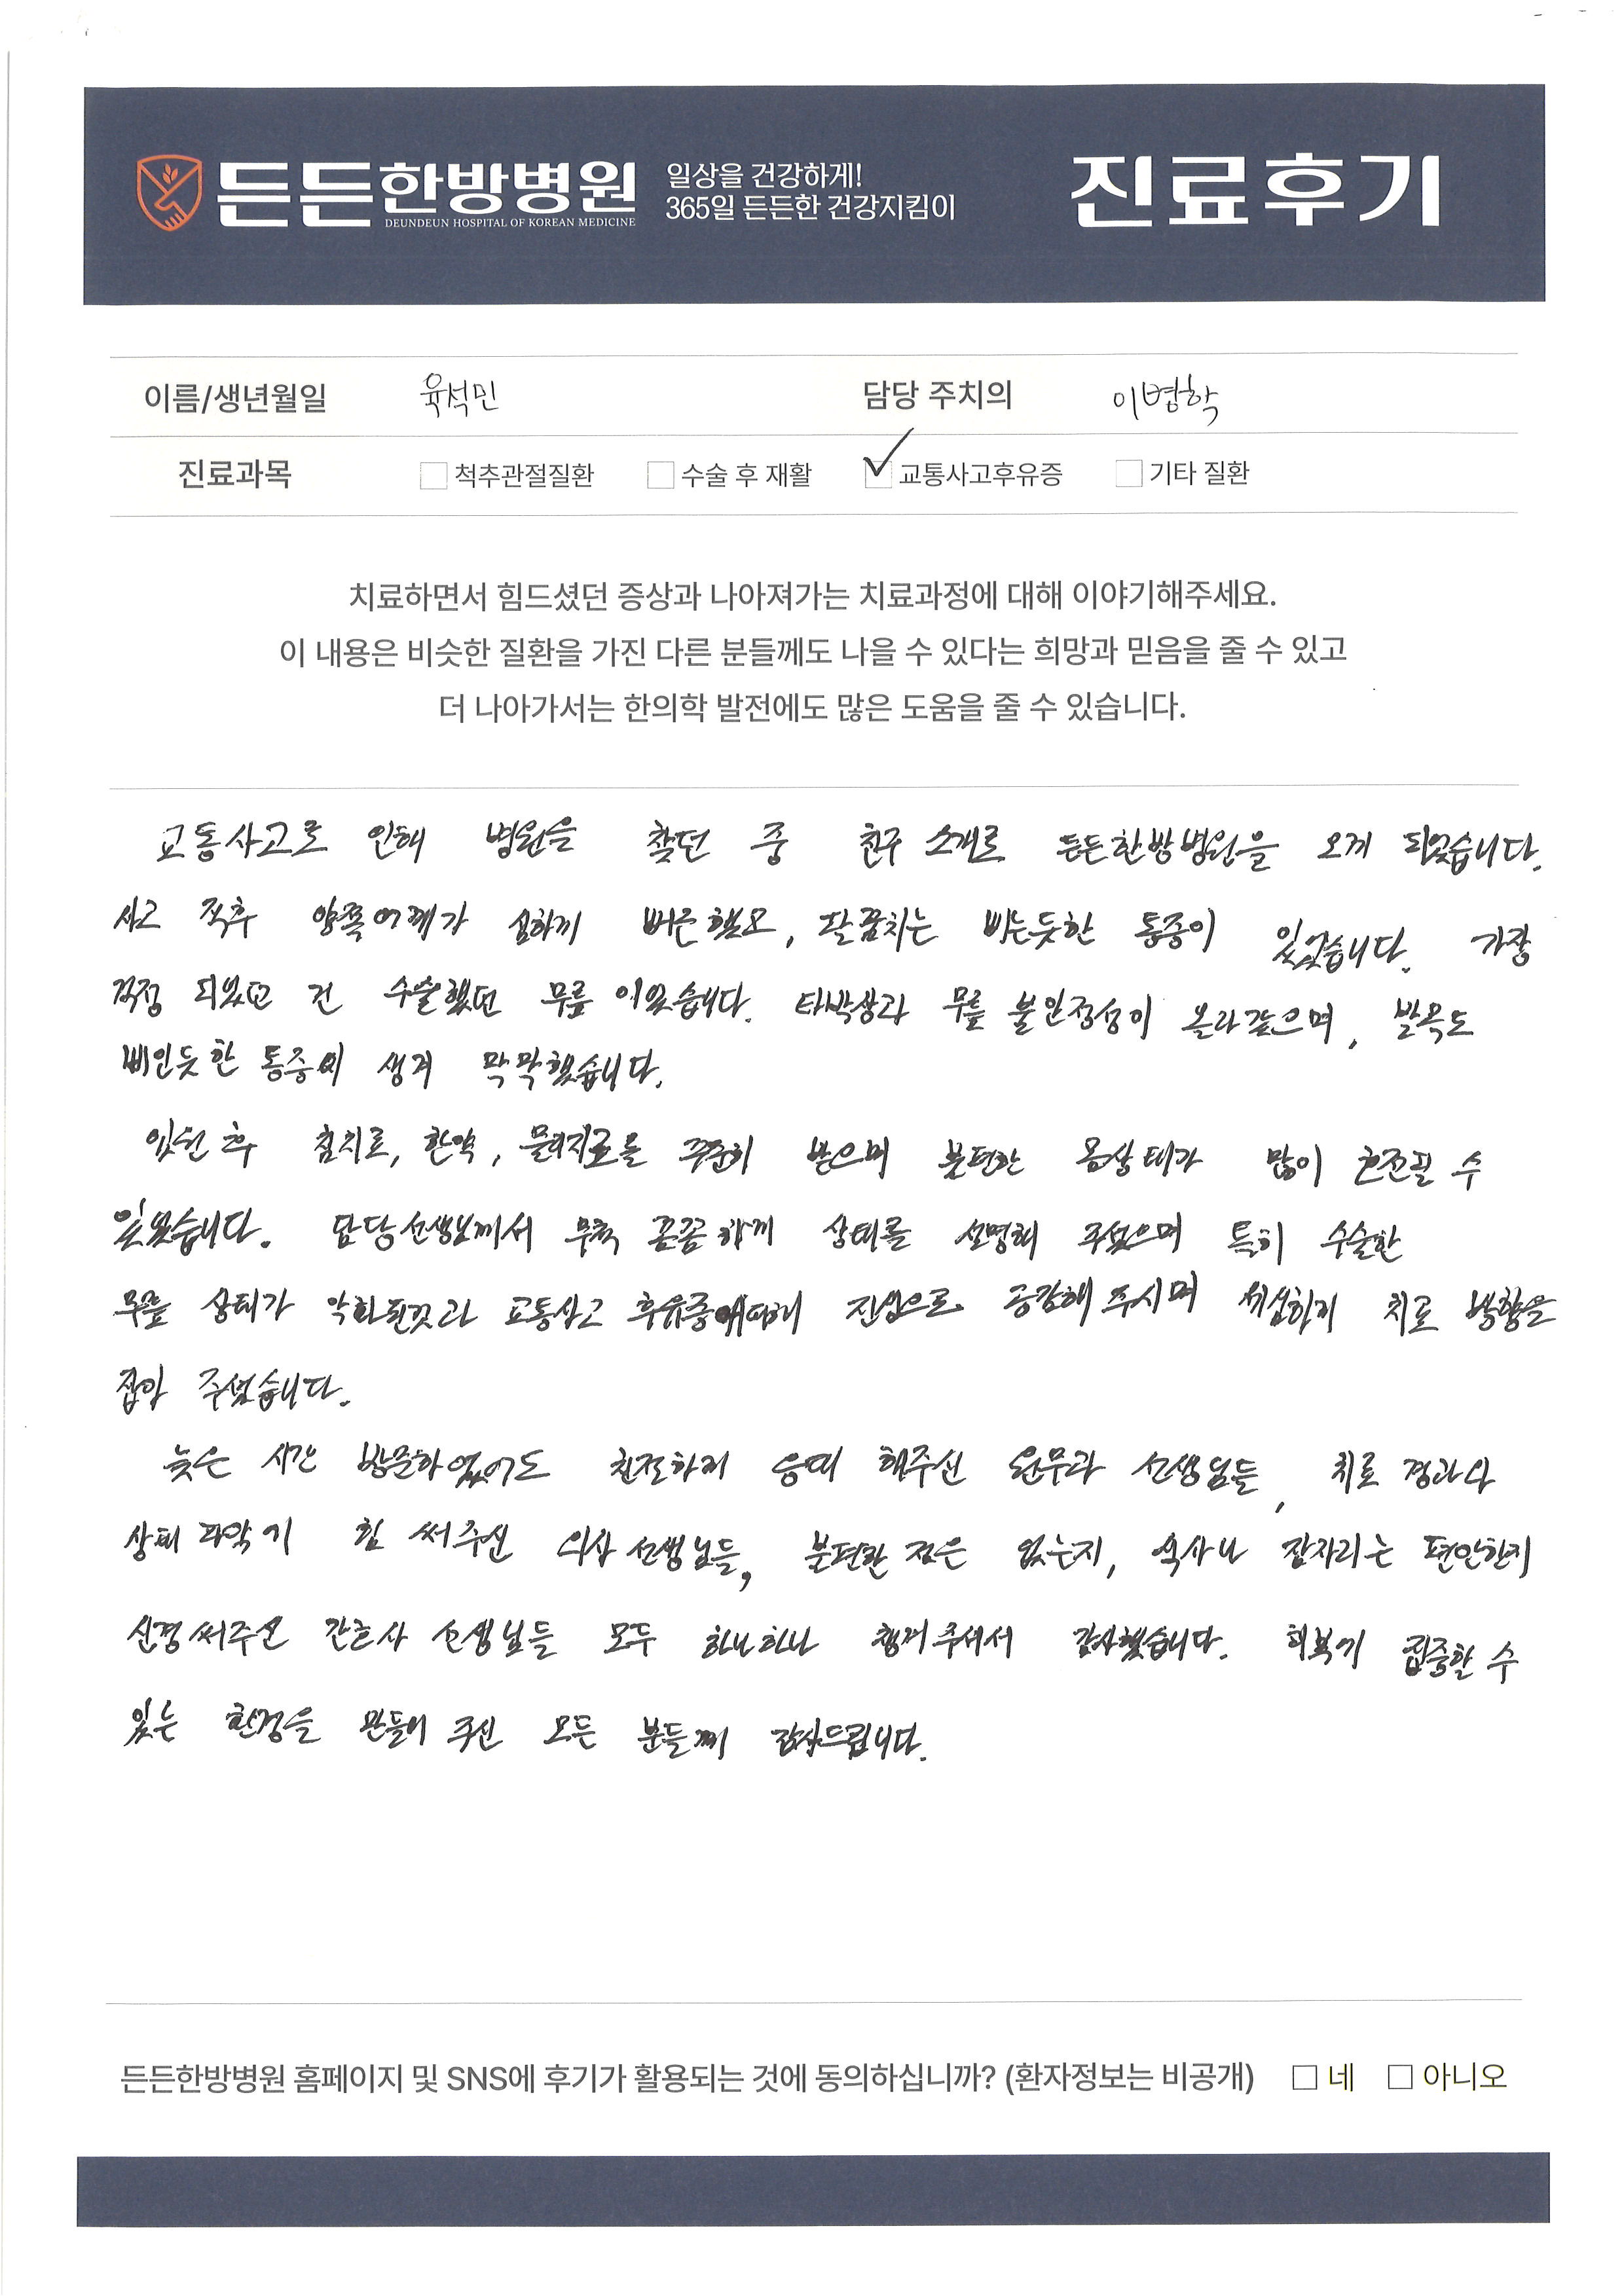 든든한방병원
DEUNDEUN HOSPITAL OF KOREAN MEDICINE
일상을 건강하게!
365일 든든한 건강지킴이
진료후기
이름/생년월일 육석민 담당 주치의 이병학
진료과목 척추관절질환 수술 후 재활 교통사고후유증 기타 질환
치료하면서 힘드셨던 증상과 나아져가는 치료과정에 대해 이야기해주세요.
이 내용은 비슷한 질환을 가진 다른 분들께도 나을 수 있다는 희망과 믿음을 줄 수 있고
더 나아가서는 한의학 발전에도 많은 도움을 줄 수 있습니다.
교통사고로 인해 병원을 찾던 중 친구 소개로 든든한방병원을 오게 되었습니다.
사고 직후 양쪽어깨가 심하게 뻐근했고, 팔꿈치는 삐는듯한 통증이 있었습니다. 가장
걱정 되었던 건 수술했던 무릎 이었습니다. 타박상과 무릎 불안정성이 올라갔으며, 발목도
삐인듯한 통증이 생겨 막막했습니다.
입원 후 침치료, 한약, 물리치료를 꾸준히 받으며 불편한 몸상태가 많이 호전될 수
있었습니다. 담당선생님께서 무척 꼼꼼하게 상태를 설명해 주셨으며 특히 수술한
무릎 상태가 악화된것과 교통사고 후유증에대해 진심으로 공감해주시며 세심하게 치료 방향을
잡아 주셨습니다.
늦은 시간 방문하였어도 친절하게 응대 해주신 원무과 선생님들, 치료 경과와
상태 파악에 힘 써주신 의사 선생님들, 불편한 점은 없는지, 식사나 잠자리는 편안한지
신경써주신 간호사 선생님들 모두 하나하나 챙겨주셔서 감사했습니다. 회복에 집중할 수
있는 환경을 만들어 주신 모든 분들께 감사드립니다.
든든한방병원 홈페이지 및 SNS에 후기가 활용되는 것에 동의하십니까? (환자정보는 비공개) 네 아니오